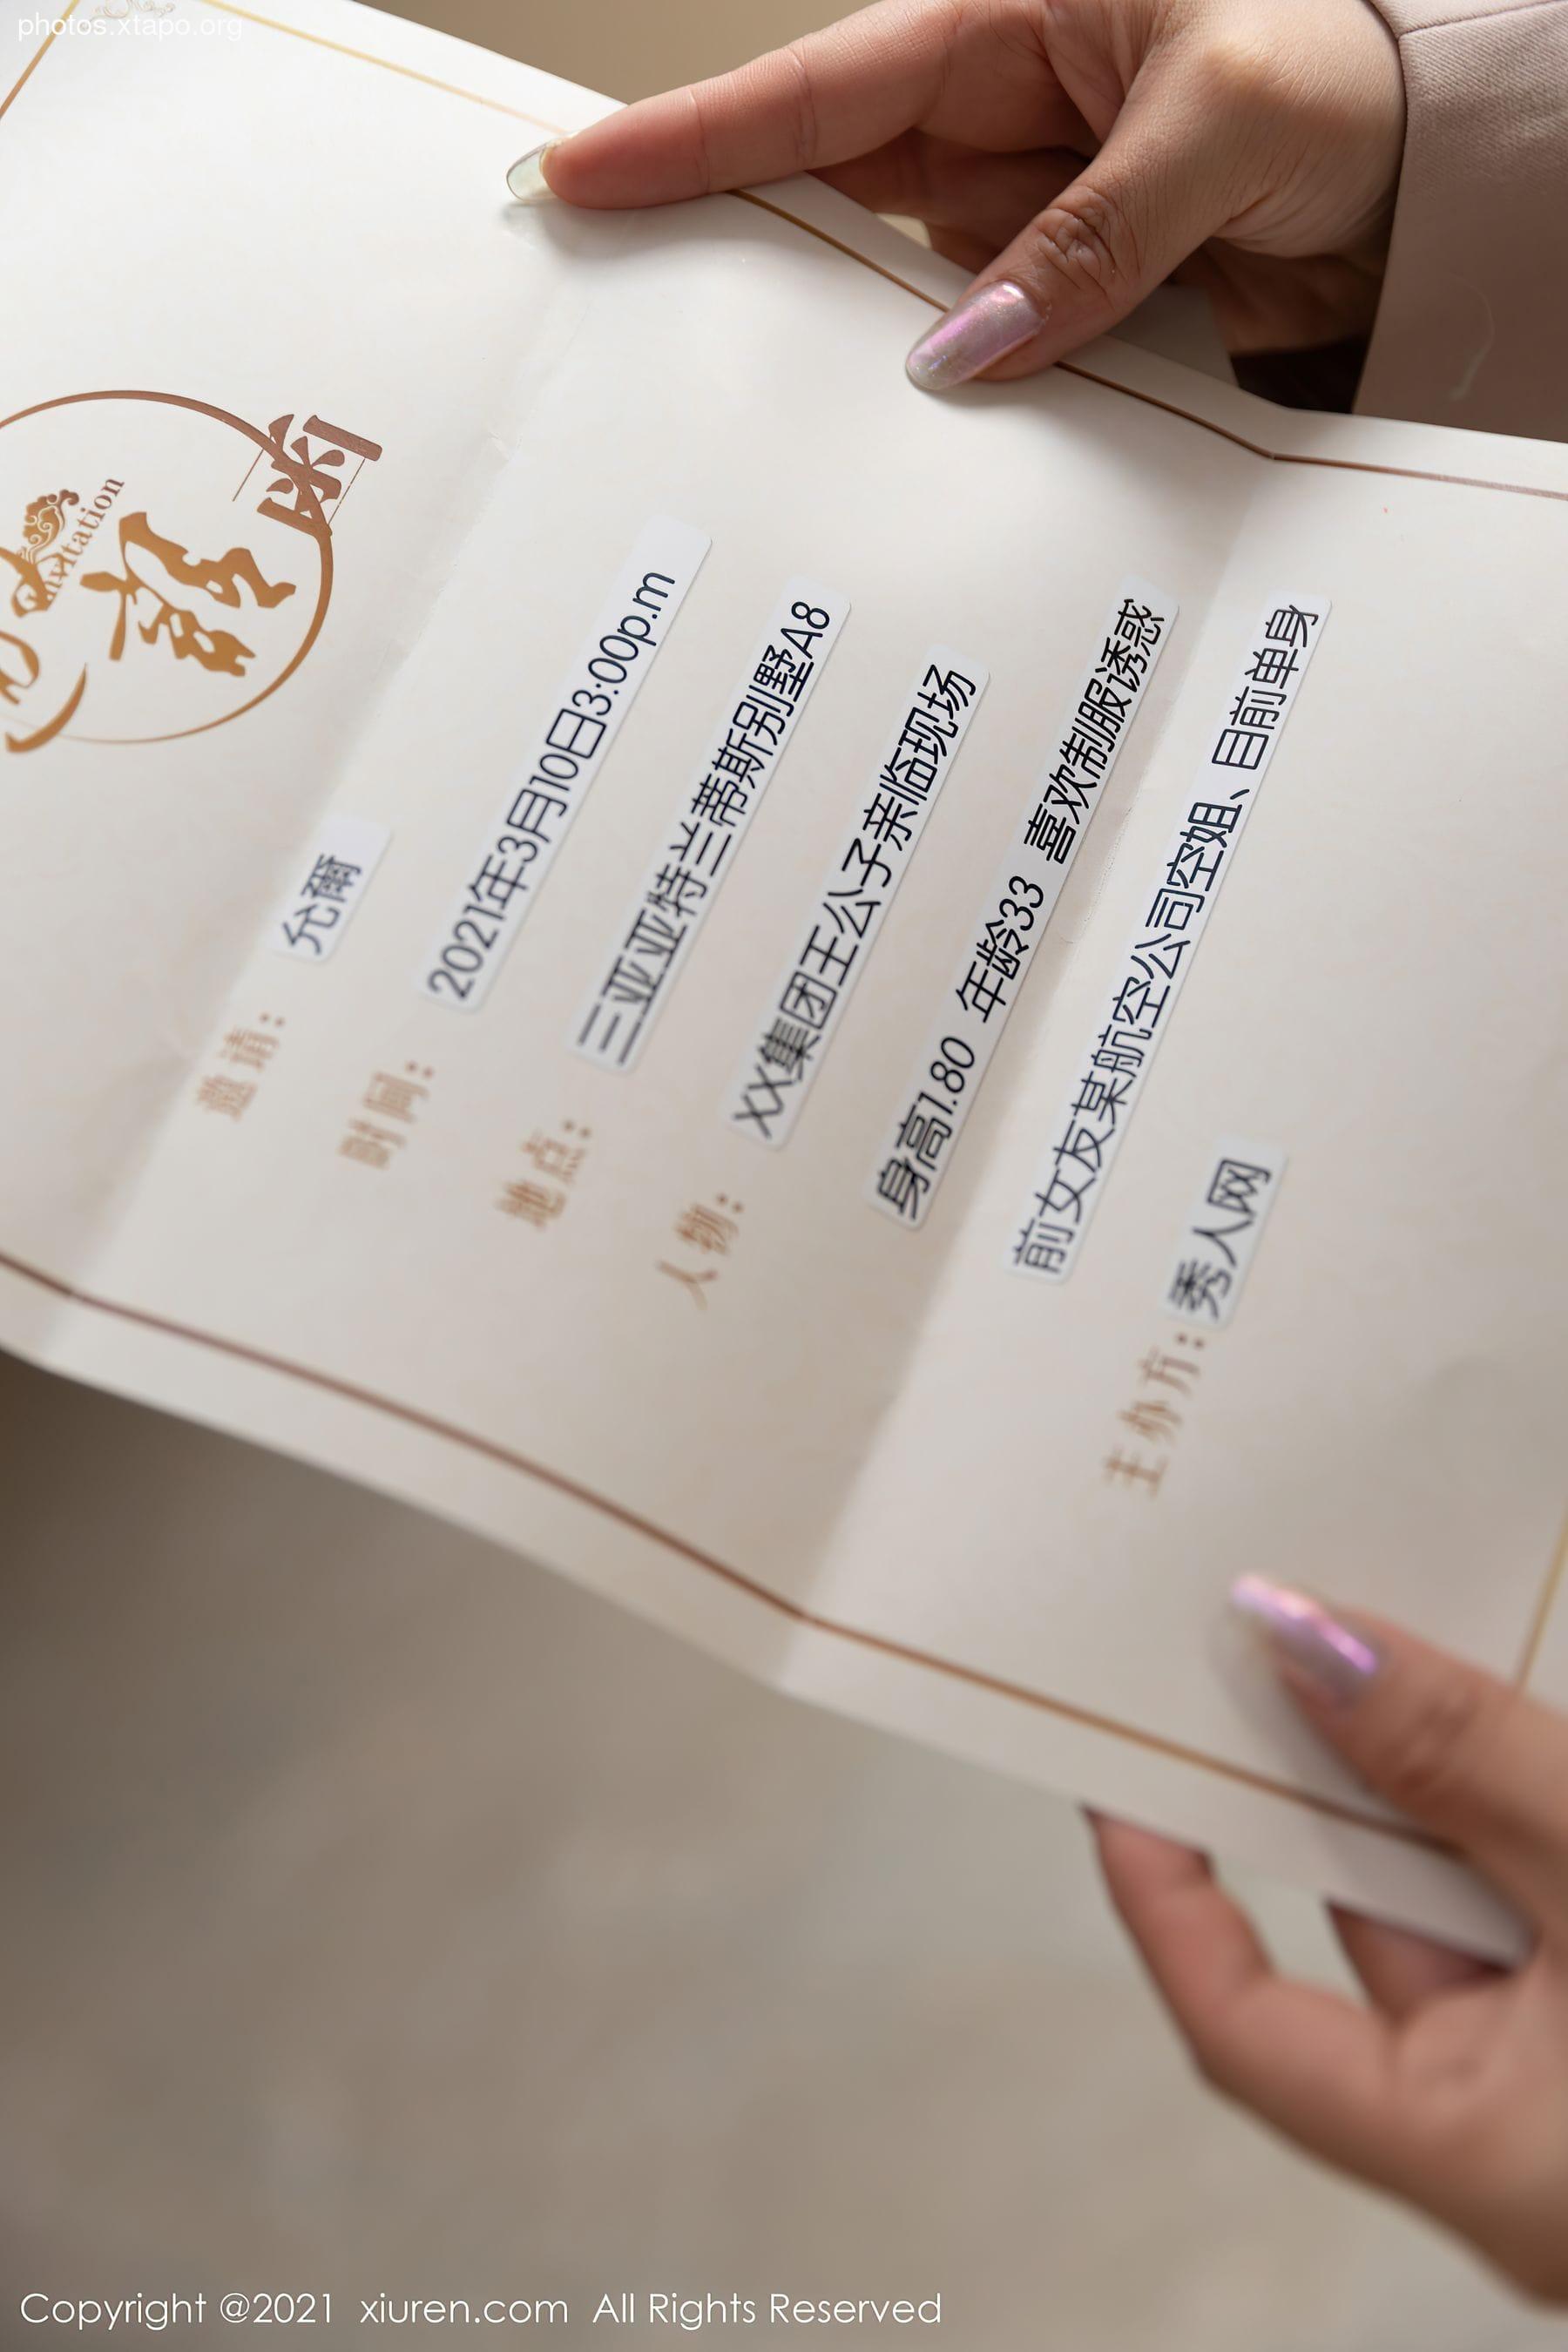 photos.xtapo.org
邀请函
Invitation
邀请：允爾
时间：2021年3月10日3:00p.m
地点：三亚亚特兰蒂斯别墅A8
人物：XX集团王公子亲临现场
身高1.80 年龄33 喜欢制服诱惑
前女友某航空公司空姐、目前单身
主办方：秀人网
Copyright @2021 xiuren.com All Rights Reserved